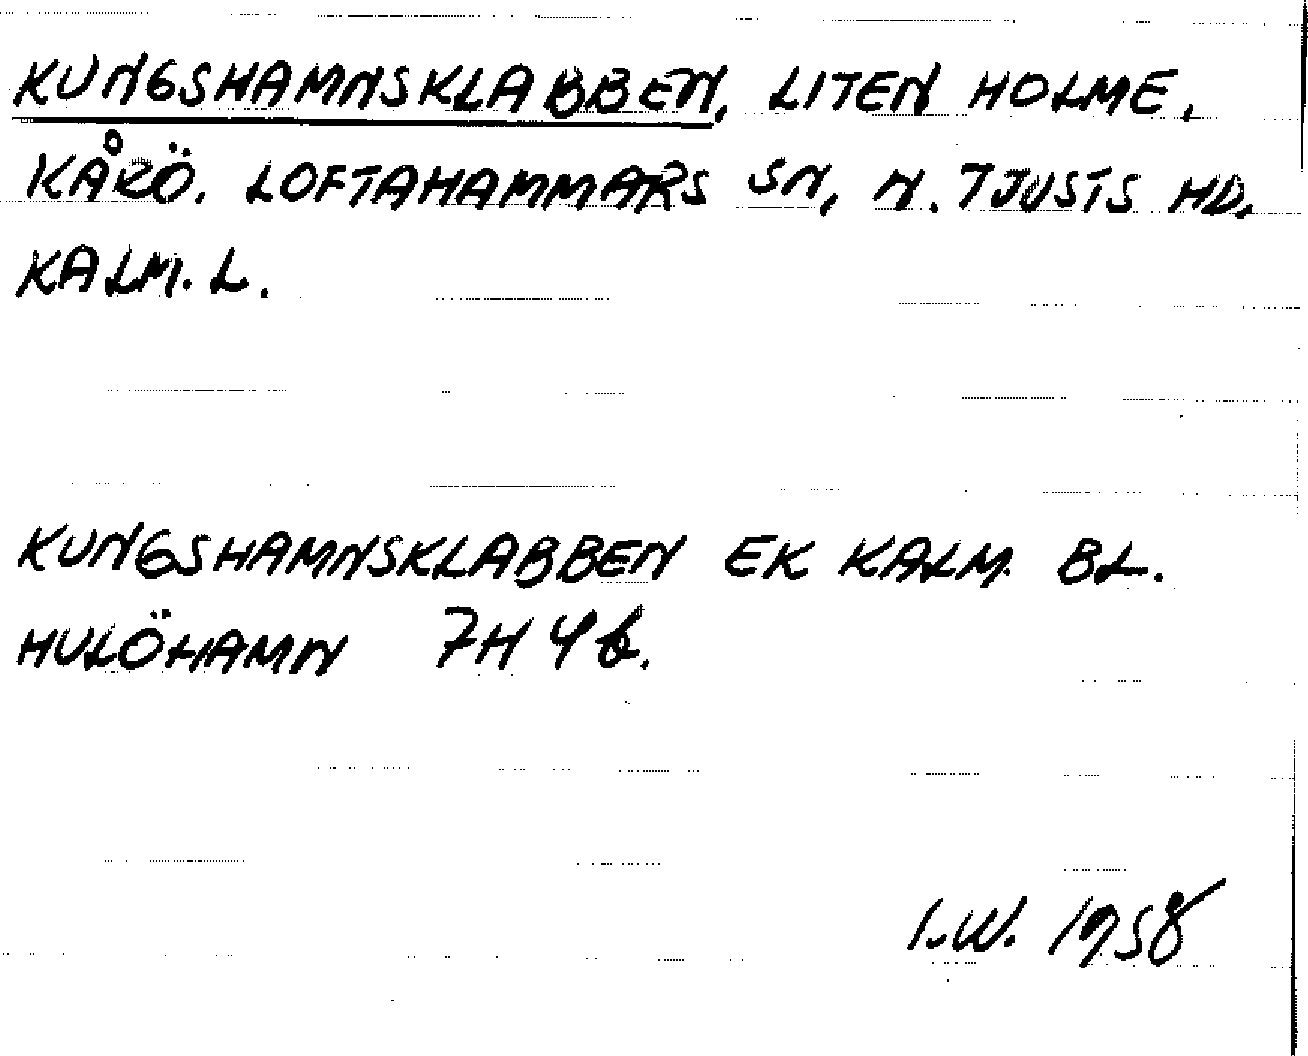 KUNGSHAMNSKLABBEN, LITEN HOLME,
KÅRÖ. LOFTAHAMMARS SN, N. TJUSTS HD,
KALM. L.
KUNGSHAMNSKLABBEN EK KALM. BL.
HULÖHAMN 7H 4b.
I.W. 1958